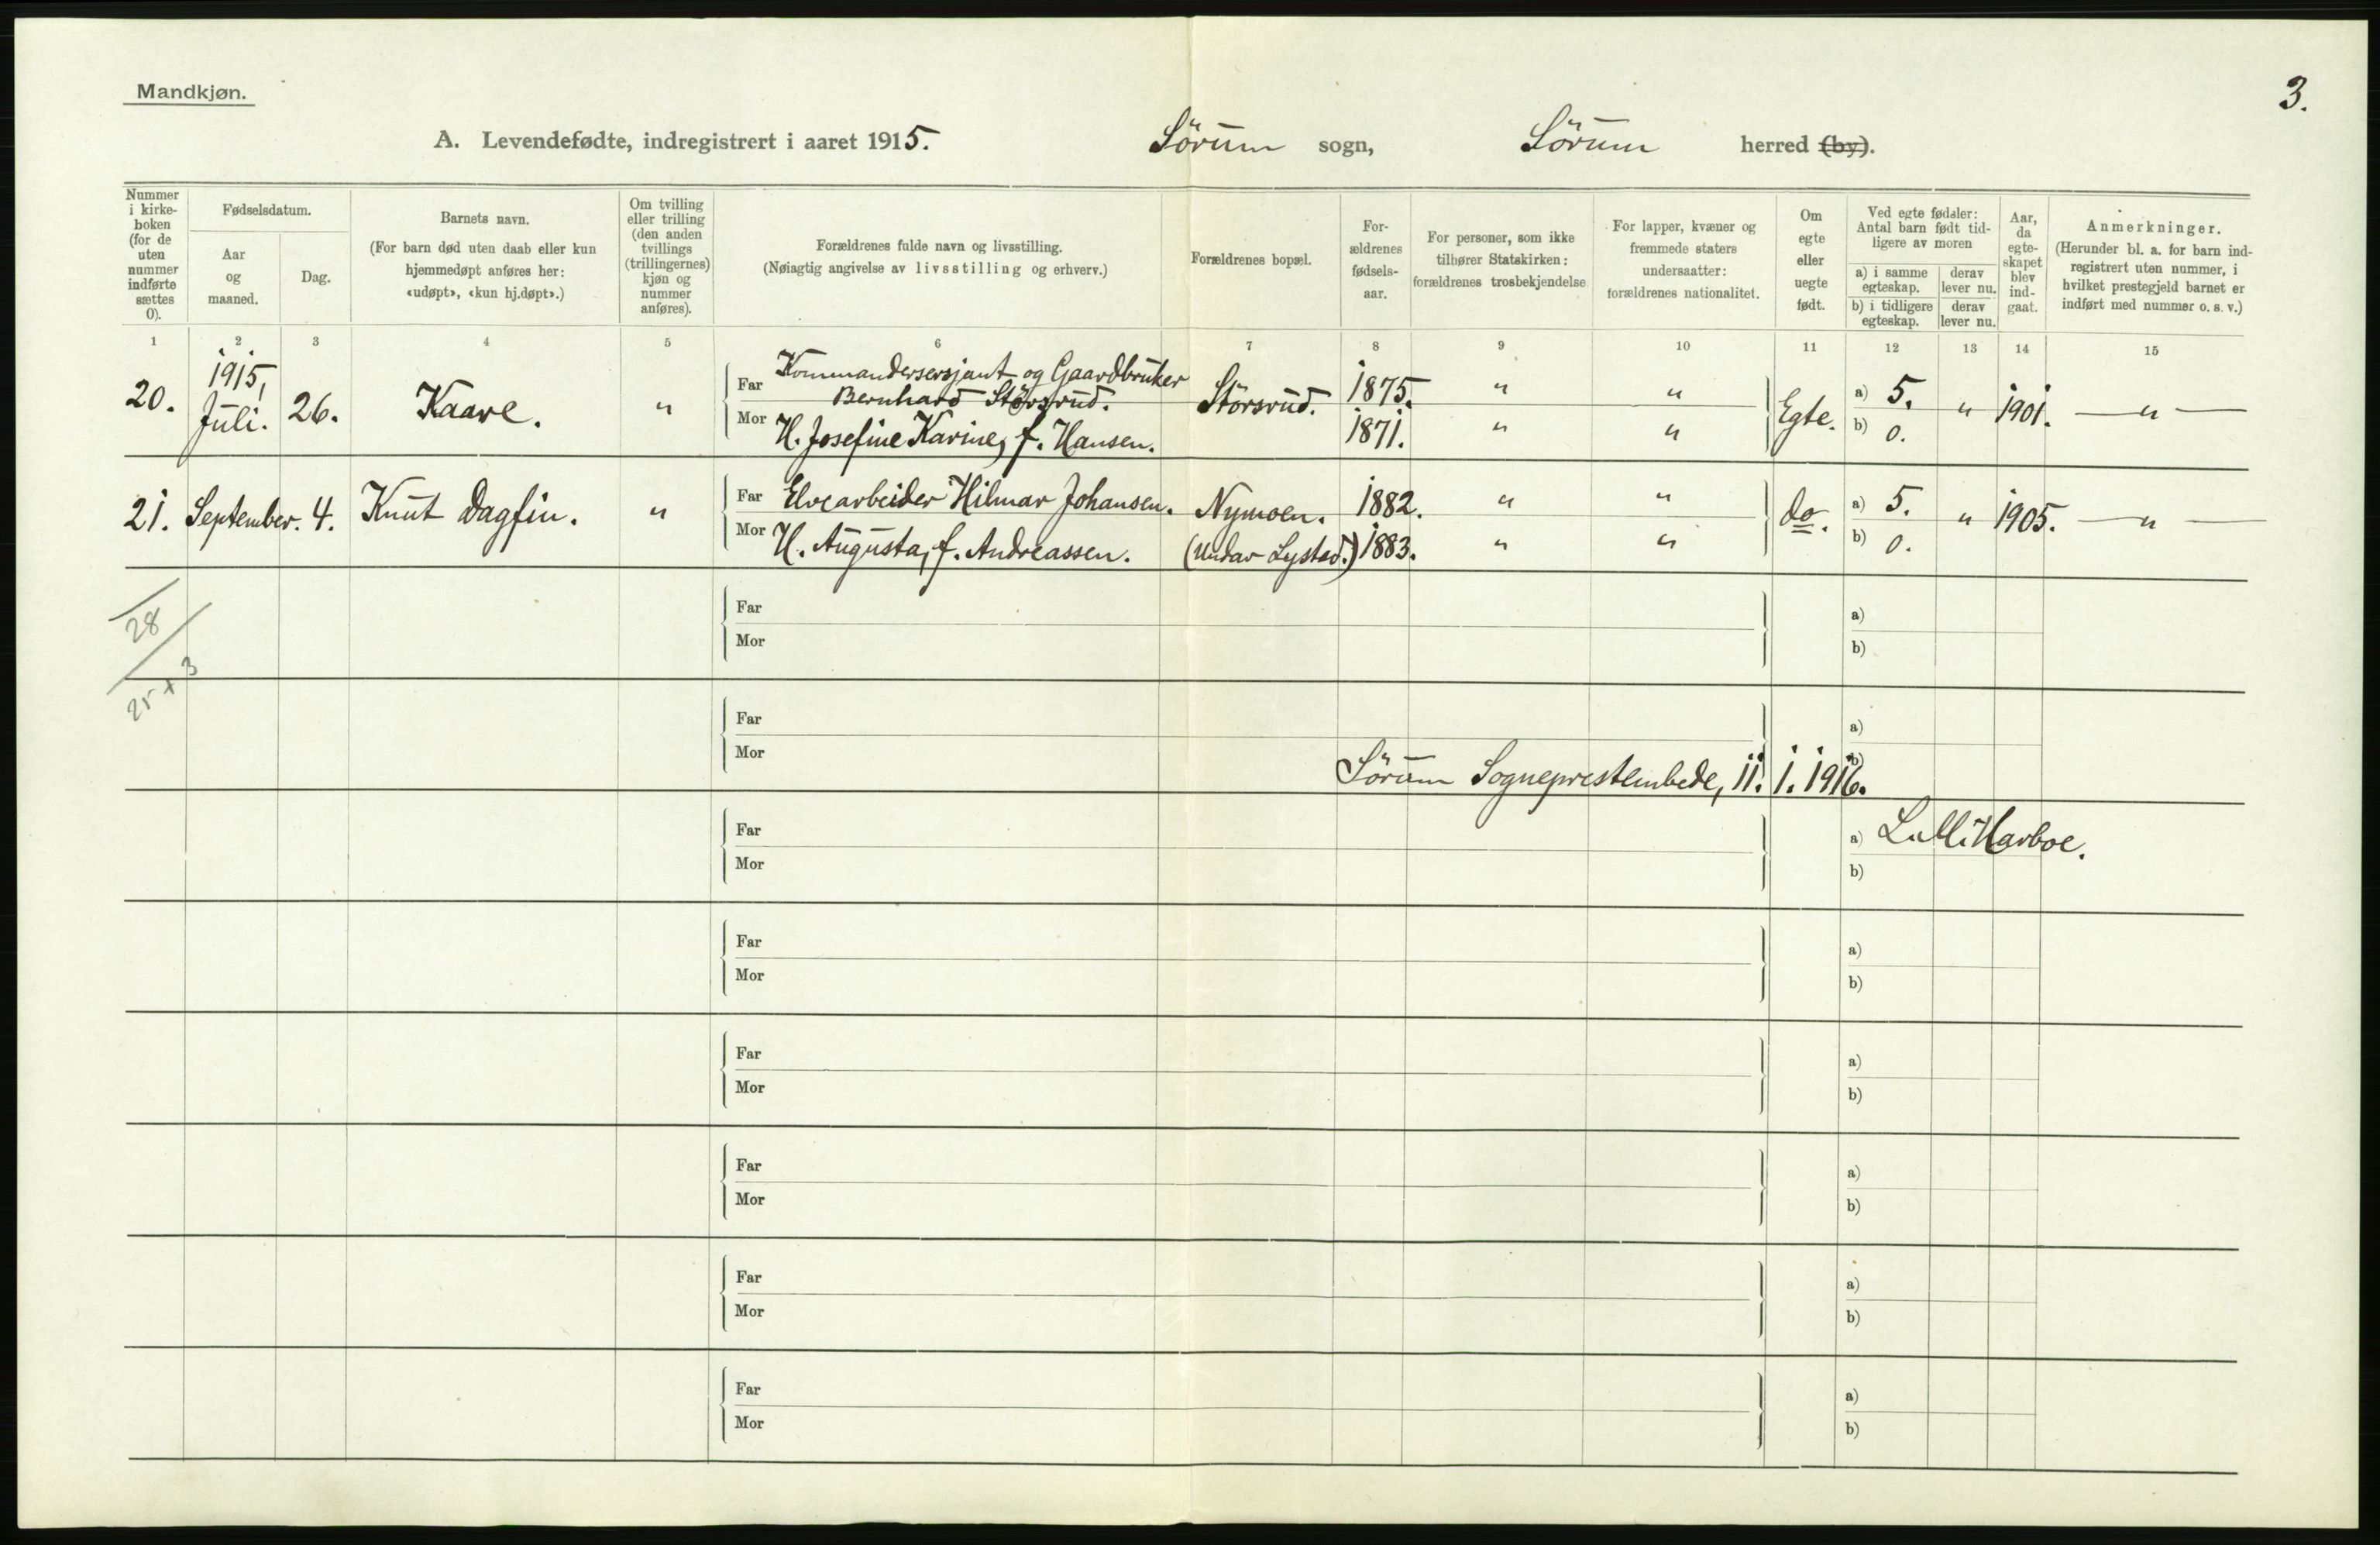 Mandkjøn.
3.
A. Levendefødte, indregistrert i aaret 1915. Sörum sogn, Sörum herred (by).
Nummer i kirke-boken (for de uten nummer indførte sættes 0).
Fødselsdatum.
Aar og maaned.
Dag.
Barnets navn.
(For barn død uten daab eller kun hjemmedøpt anføres her: «udøpt», «kun hj.døpt».)
Om tvilling eller trilling (den anden tvillings (trillingernes) kjøn og nummer anføres).
Forældrenes fulde navn og livsstilling.
(Nøiagtig angivelse av livsstilling og erhverv.)
Forældrenes bopæl.
For-ældrenes fødsels-aar.
For personer, som ikke tilhører Statskirken: forældrenes trosbekjendelse
For lapper, kvæner og fremmede staters undersaatter: forældrenes nationalitet.
Om egte eller uegte født.
Ved egte fødsler: Antal barn født tid-ligere av moren
a) i samme egteskap.
derav lever nu.
b) i tidligere egteskap.
derav lever nu.
Aar, da egte-skapet blev ind-gaat.
Anmerkninger.
(Herunder bl. a. for barn ind-registrert uten nummer, i hvilket prestegjeld barnet er indført med nummer o. s. v.)
1 2 3 4 5 6 7 8 9 10 11 12 13 14 15
20. 1915, Juli. 26. Kaare. "
Far Kommandersersjant og Gaardbruker
Bernhard Störsrud. Störsrud. 1875. " " a) 5. " 1901. — " —
Mor H. Josefine Karine, f. Hansen. 1871. " " Egte. b) 0.
21. September. 4. Knut Dagfin. " Far Elvearbeider Hilmar Johansen. Nymoen. 1882. " " do. a) 5. " 1905. — " —
Mor H. Augusta, f. Andreassen. (undar Lystad.) 1883. " " b) 0.
28
25 + 3
Far a)
Mor b)
Far a)
Mor b)
Sörum Sogneprestembede, 11. 1. 1916.
Far a) Harboe.
Mor b)
Far a)
Mor b)
Far a)
Mor b)
Far a)
Mor b)
Far a)
Mor b)
Far a)
Mor b)